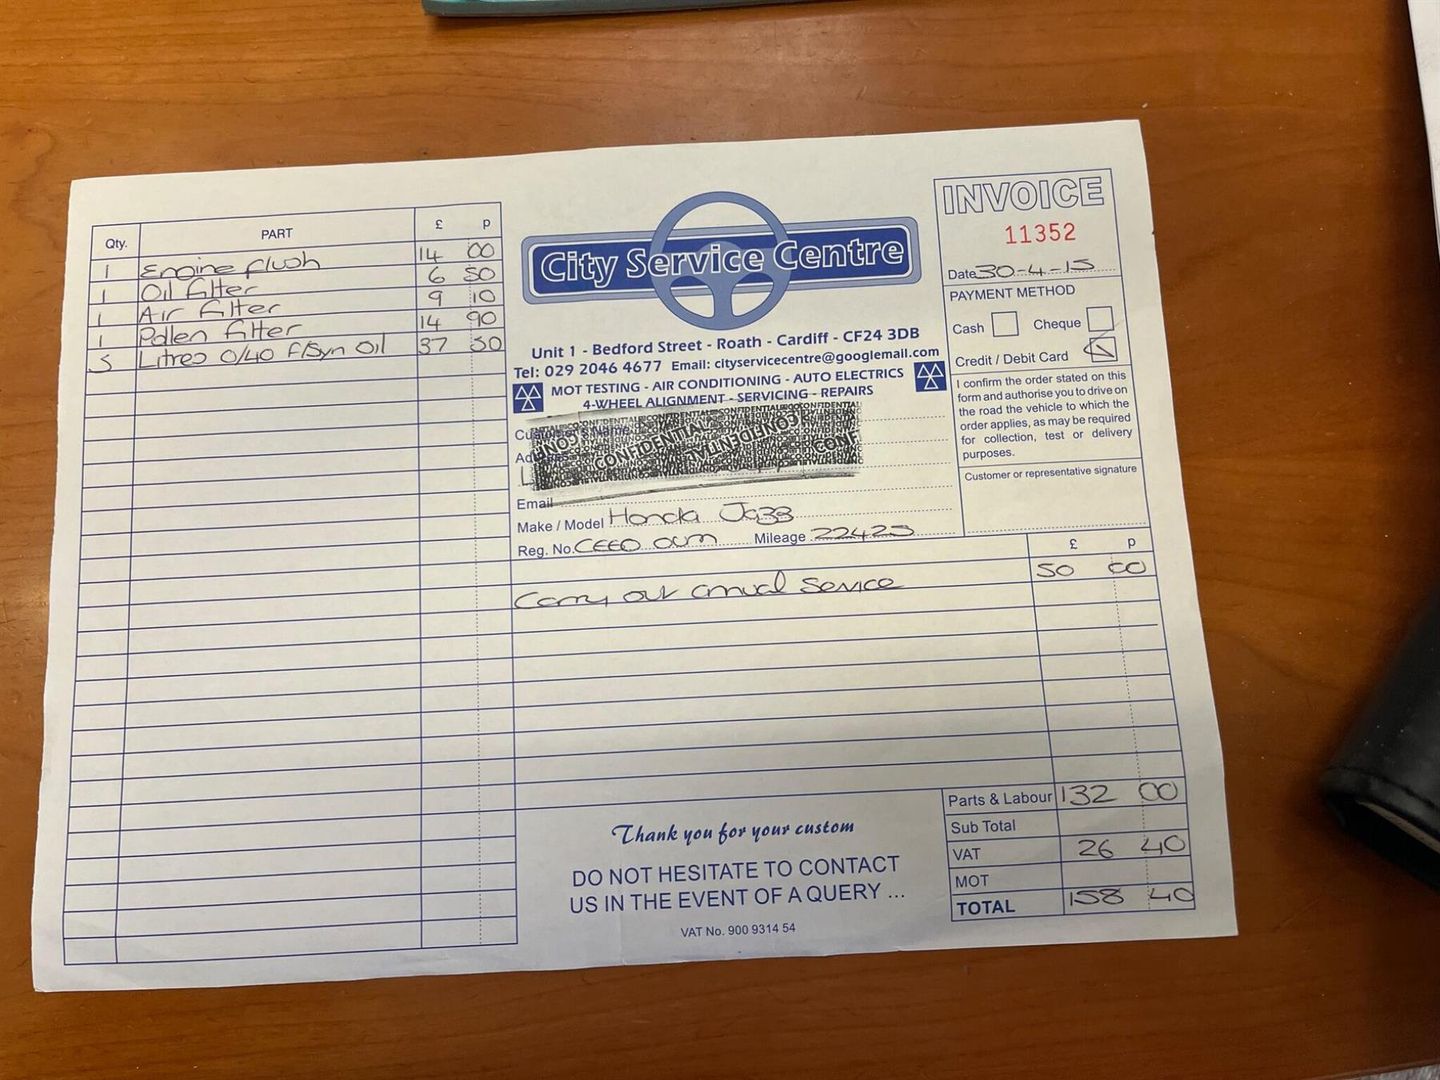 Qty. PART £ p
1 Engine flush 14 00
1 Oil filter 6 50
1 Air filter 9 10
1 Pollen filter 14 90
5 Litres 0/40 F/Syn Oil 37 50
City Service Centre
Unit 1 - Bedford Street - Roath - Cardiff - CF24 3DB
Tel: 029 2046 4677 Email: cityservicecentre@googlemail.com
MOT TESTING - AIR CONDITIONING - AUTO ELECTRICS
4-WHEEL ALIGNMENT - SERVICING - REPAIRS
Customer's Name
CONFIDENTIAL
Address
Email
Make / Model Honda Jazz
Reg. No. Mileage 22423
INVOICE
11352
Date 30-4-15
PAYMENT METHOD
Cash Cheque
Credit / Debit Card
I confirm the order stated on this
form and authorise you to drive on
the road the vehicle to which the
order applies, as may be required
for collection, test or delivery
purposes.
Customer or representative signature
£ p
Carry out annual Service 50 00
Parts & Labour 132 00
Sub Total
VAT 26 40
MOT
TOTAL 158 40
Thank you for your custom
DO NOT HESITATE TO CONTACT
US IN THE EVENT OF A QUERY ...
VAT No. 900 9314 54